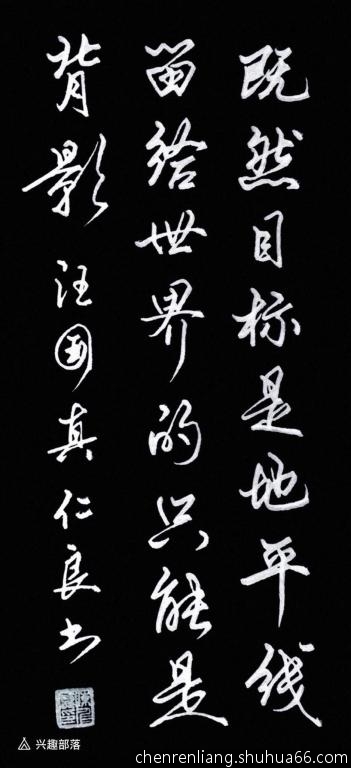 既然目标是地平线
留给世界的只能是
背影 汪国真 仁良书
兴趣部落
chenrenliang.shuhua66.com